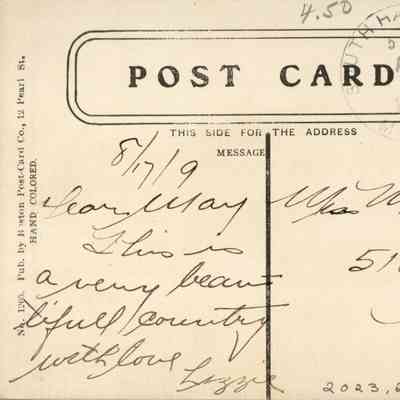 4.50
SOUTH HA
POST CARD
THIS SIDE FOR THE ADDRESS
MESSAGE
8/17/9
Dear May
This is
a very beau-
tifull country
with love
Lizzie
Miss M
51
2023.
No. Pub. by Boston Post-Card Co., 12 Pearl St.
HAND COLORED.